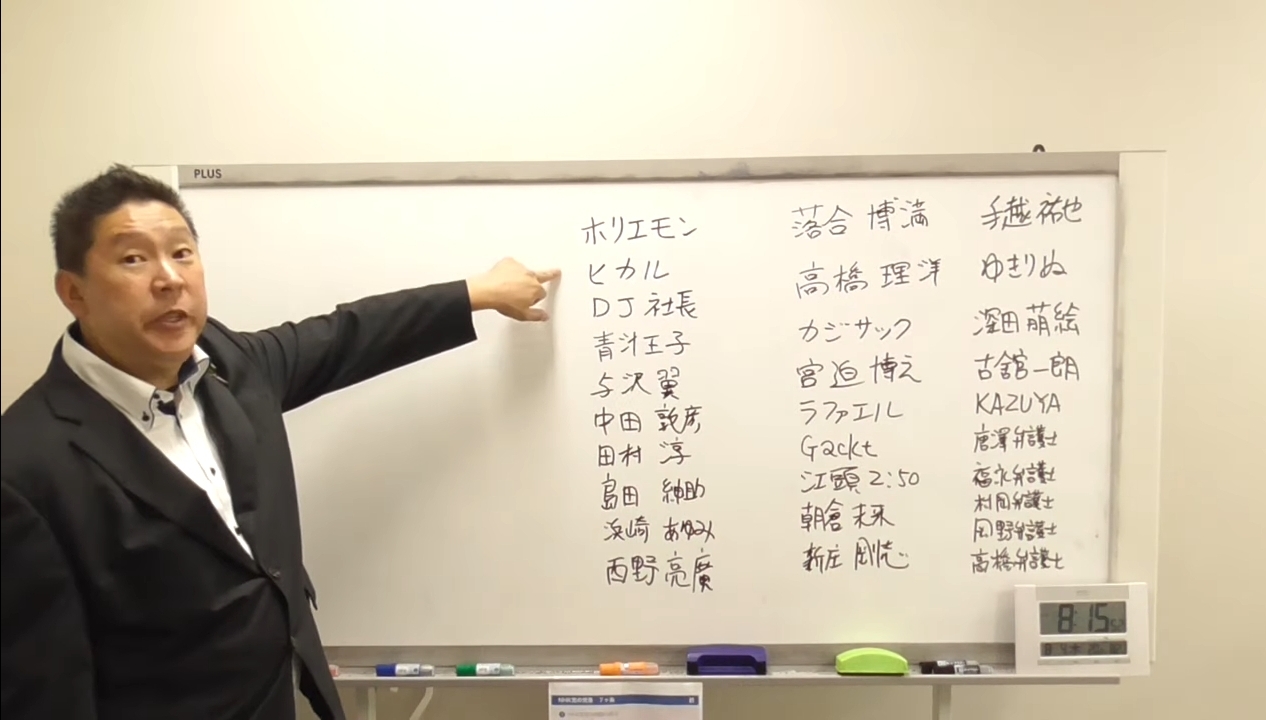 PLUS
ホリエモン
ヒカル
DJ社長
青汁王子
与沢翼
中田 敦彦
田村 淳
島田 紳助
浜崎 あゆみ
西野 亮廣
落合 博満
高橋 理洋
カジサック
宮迫 博之
ラファエル
Gackt
江頭2:50
朝倉 未来
新庄 剛志
手越 祐也
ゆきりぬ
深田 萌絵
古舘一郎
KAZUYA
唐澤弁護士
福永弁護士
村岡弁護士
岡野弁護士
高橋弁護士
8:15